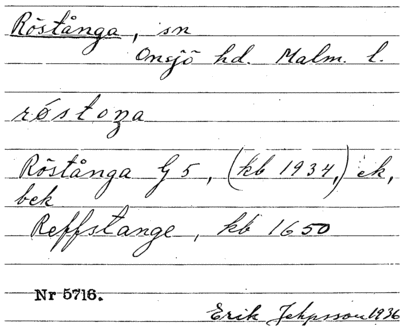 Röstånga, sn
Onsjö hd. Malm. l.
röstoŋa
Röstånga G 5, (kb 1934,) ek,
bek
Reffstange, kb 1650
Nr 5716.
Erik Jeppsson 1936